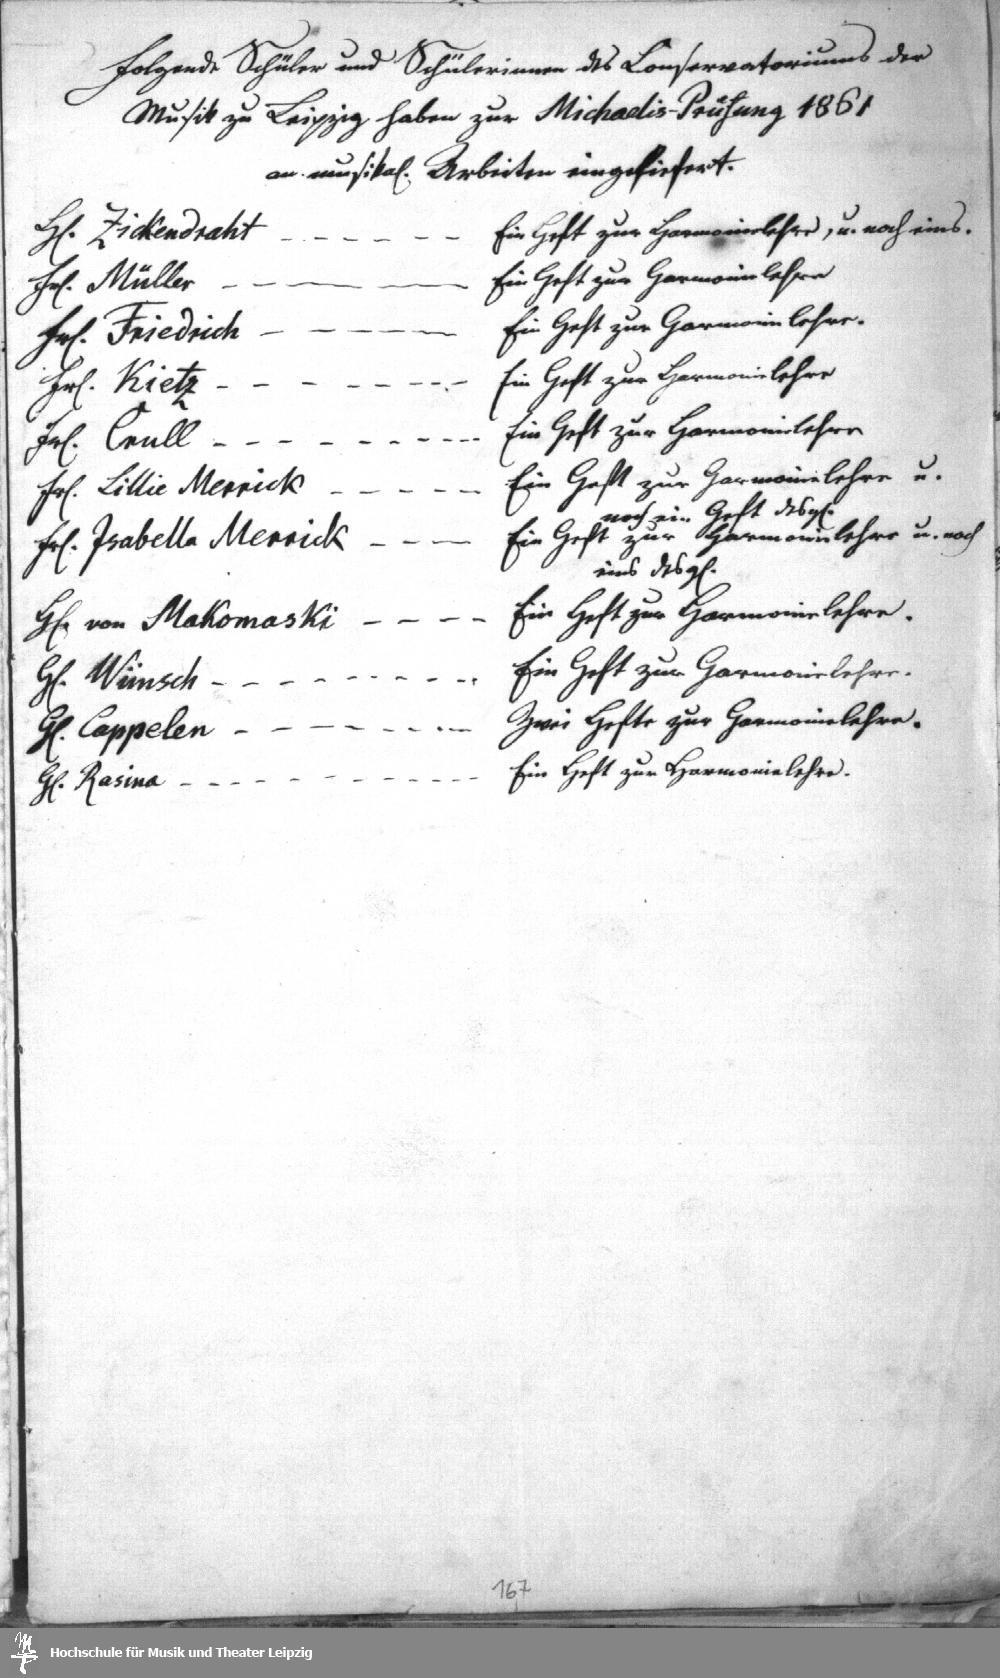 Folgende Schüler und Schülerinnen des Conservatoriums der
Musik zu Leipzig haben zur Michaelis-Prüfung 1861
an musikal. Arbeiten eingeliefert.
H. Zickendraht - - - - - - Ein Heft zur Harmonielehre, u. noch eins.
Frl. Müller - - - - - Ein Heft zur Harmonielehre
Frl. Friedrich - - - - - Ein Heft zur Harmonielehre.
Frl. Kietz - - - - - - - Ein Heft zur Harmonielehre
Frl. Crull - - - - - - - - Ein Heft zur Harmonielehre
Frl. Lillie Merrick - - - - - Ein Heft zur Harmonielehre u.
noch ein Heft desgl.
Frl. Isabella Merrick - - - Ein Heft zur Harmonielehre u. noch
eins desgl.
H. von Makomaski - - - - Ein Heft zur Harmonielehre.
H. Wünsch - - - - - - - - Ein Heft zur Harmonielehre.
H. Cappelen - - - - - - Zwei Hefte zur Harmonielehre.
H. Rasina - - - - - - - - - Ein Heft zur Harmonielehre.
167
Hochschule für Musik und Theater Leipzig